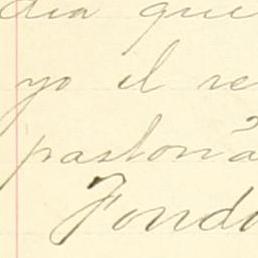 dia que
yo el re
pastora
Fond